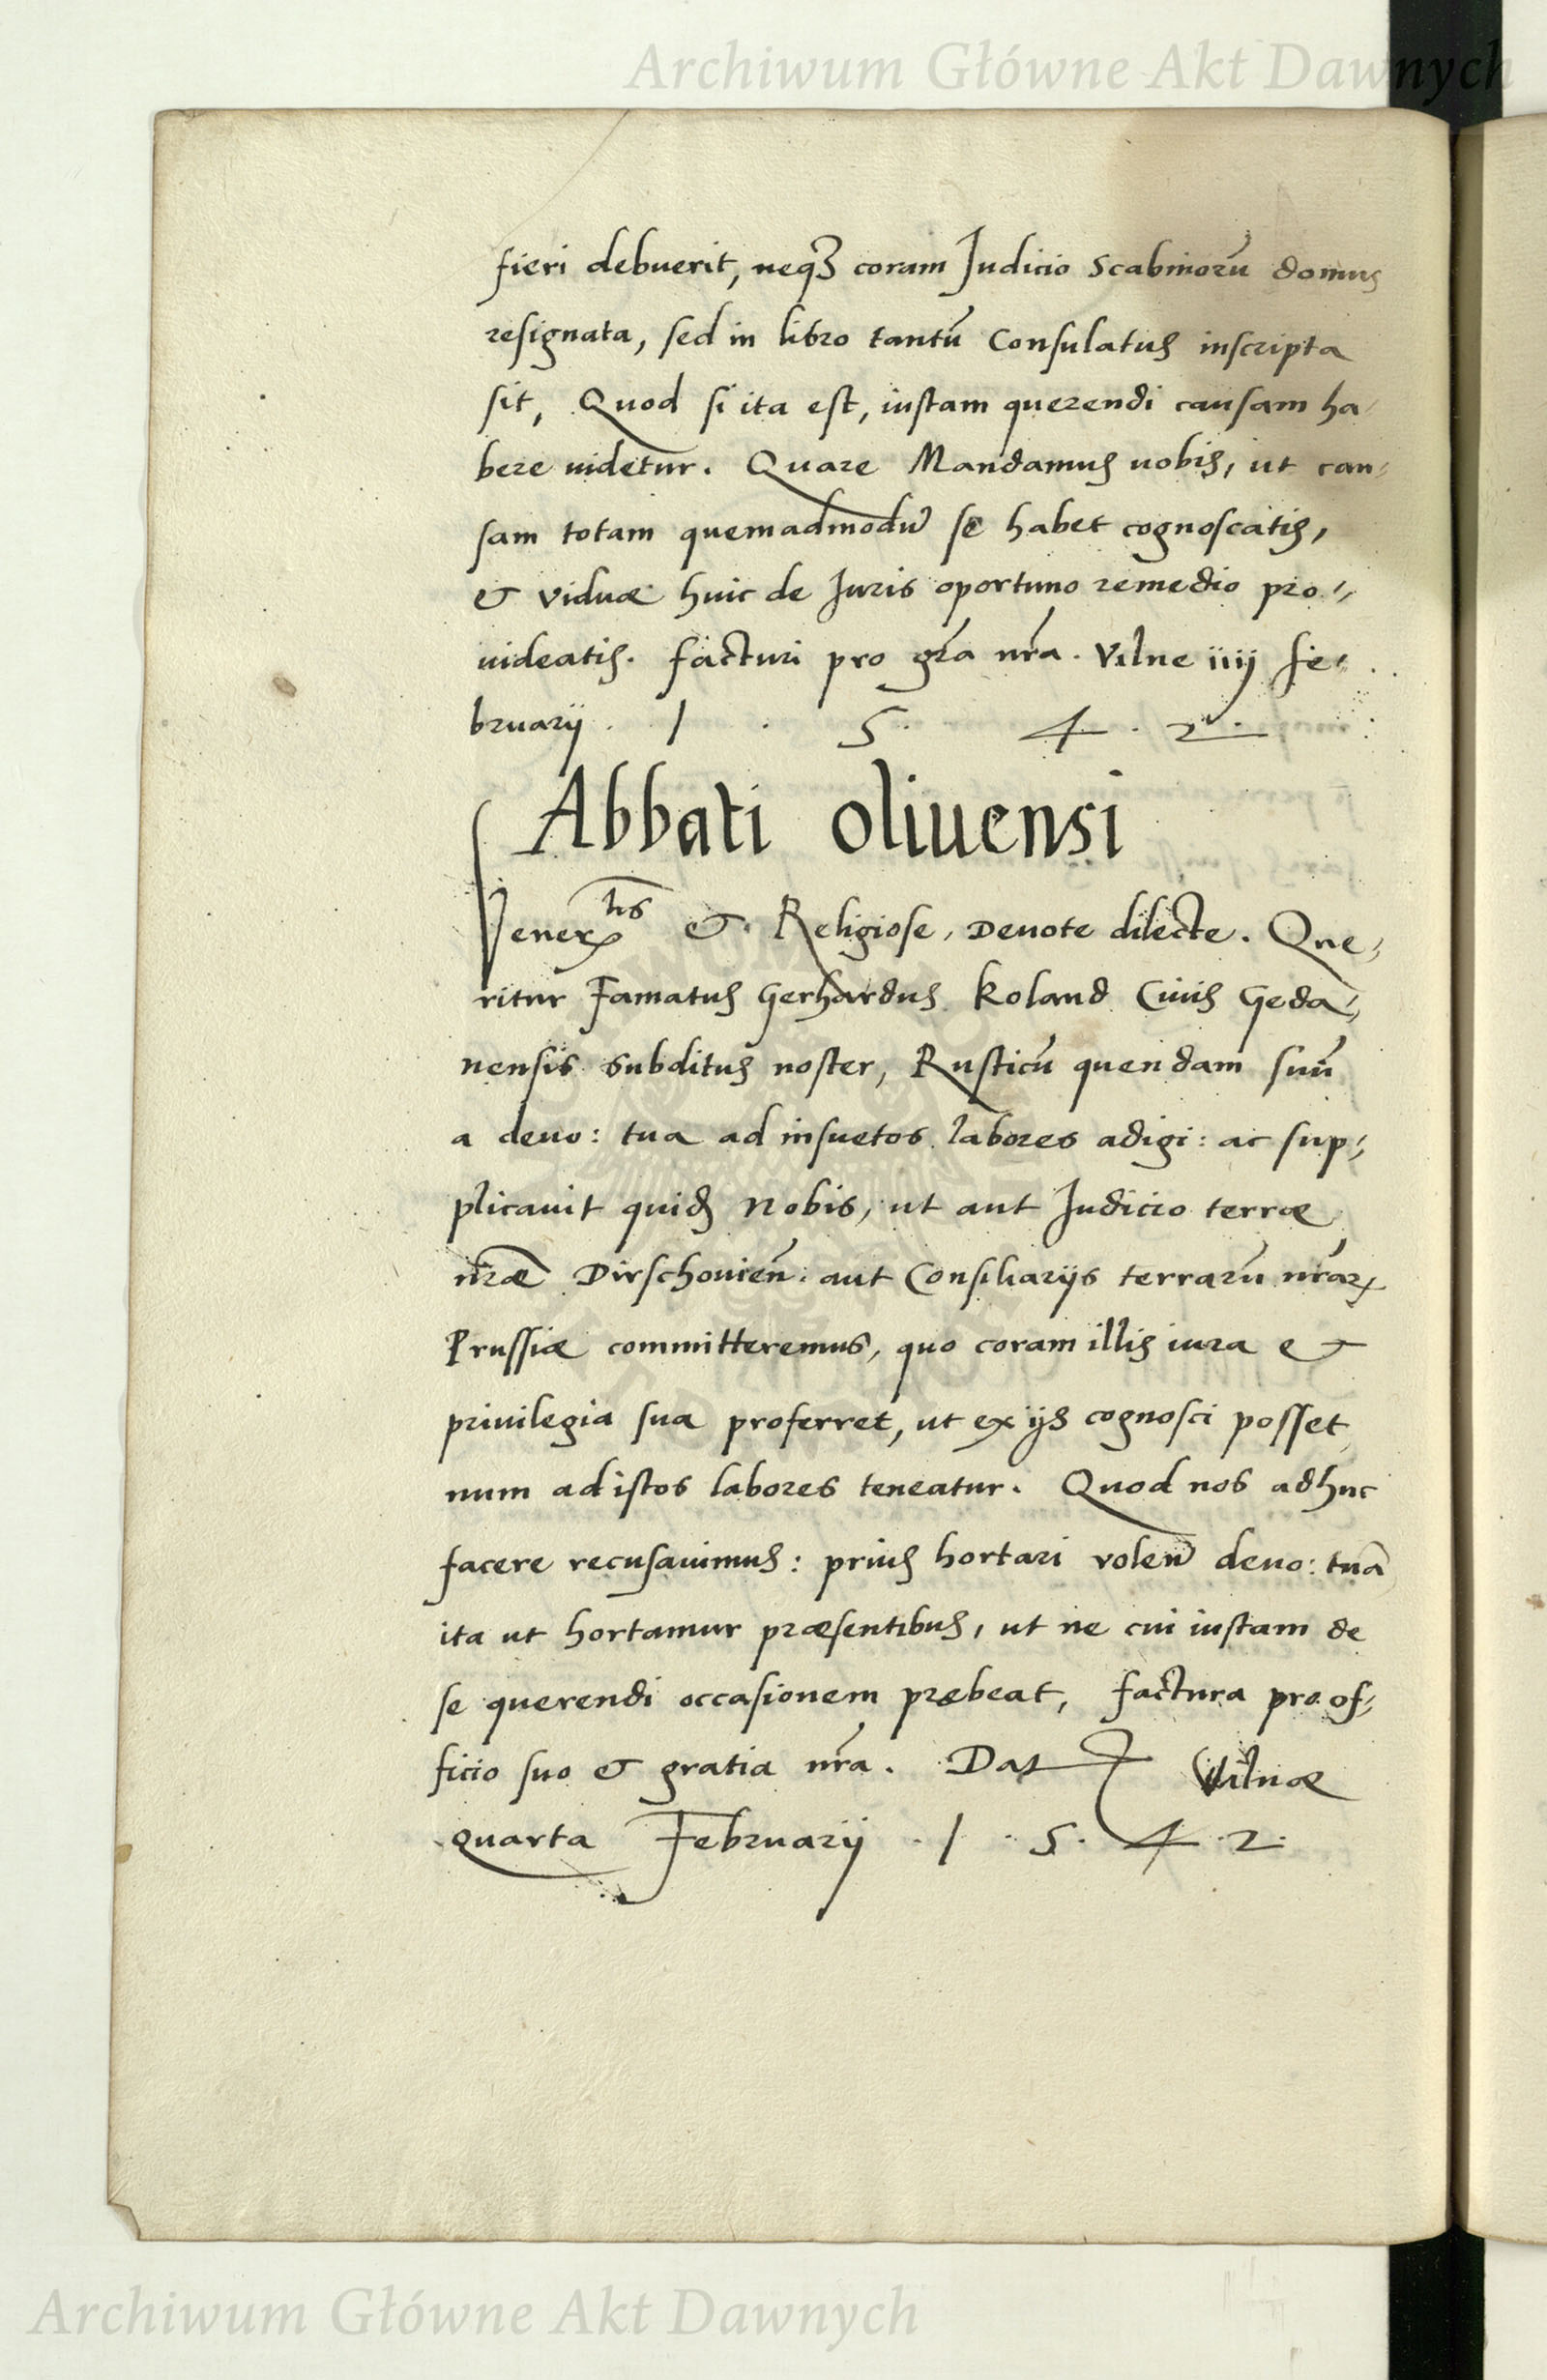 Archiwum Główne Akt Dawnych
fieri debuerit, neqꝫ coram Judicio Scabinorū domus
resignata, sed in libro tantū Consulatus inscripta
sit, Quod si ita est, iustam querendi causam ha-
bere uidetur. Quare Mandamus uobis, ut cau-
sam totam quemadmodū se habet cognoscatis,
& viduæ huic de Juris oportuno remedio pro-
uideatis. facturi pro gr̃a nr̃a. Vilne iiij fe-
bruarij . 1 . 5 . 4 . 2 .
Abbati oliuensi
Venerꝫ & Religiose, Deuote dilecte. Que-
ritur Famatus Gerhardus Koland Ciuis Geda-
nensis Subditus noster, Rusticū quendam suū
a deuo: tua ad insuetos labores adigi: ac sup-
plicauit quidē Nobis, ut aut Judicio terræ
nr̃æ Dirschouień: aut Consiliarijs terrarū nr̃arꝝ
Prussiæ committeremus, quo coram illis iura &
priuilegia sua proferret, ut ex ijs cognosci posset
num ad istos labores teneatur. Quod nos adhuc
facere recusauimus: prius hortari volen̄ deuo: tuā
ita ut hortamur præsentibus, ut ne cui iustam de
se querendi occasionem præbeat, factura pro of-
ficio suo & gratia nr̃a. Dat Vilnæ
quarta Februarij . 1 . 5 . 4 . 2 .
Archiwum Główne Akt Dawnych